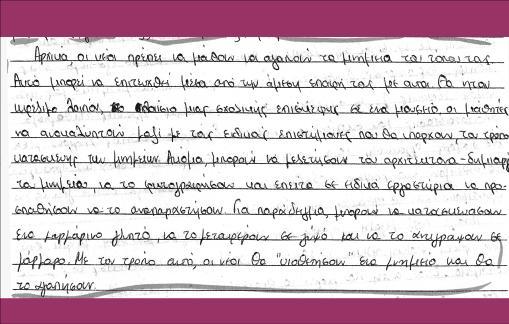 Αρχικά, οι νέοι πρέπει να μάθουν να αγαπούν τα μνημεία του τόπου τους.
Αυτό μπορεί να επιτευχθεί μέσα από την άμεση επαφή τους με αυτά. Θα ήταν
χρήσιμο λοιπόν, στο πλαίσιο μιας σχολικής επισκέψεως σε ένα μουσείο οι μαθητές
να ανακαλύπτουν μαζί με τους ειδικούς επιστήμονες που θα υπάρχουν, τον τρόπο
κατασκευής των μνημείων. Ακόμα, μπορούν να μελετήσουν τον αρχιτέκτονα-δημιουργό
του μνημείου, να το φωτογραφήσουν και έπειτα σε ειδικά εργαστήρια να προ-
σπαθήσουν να το αναπαραστήσουν. Για παράδειγμα, μπορούν να κατασκευάσουν
ένα μαρμάρινο γλυπτό, να το μεταφέρουν σε γύψο και να το αντιγράψουν σε
μάρμαρο. Με τον τρόπο αυτό, οι νέοι θα "υιοθετήσουν" ένα μνημείο και θα
το αγαπήσουν.